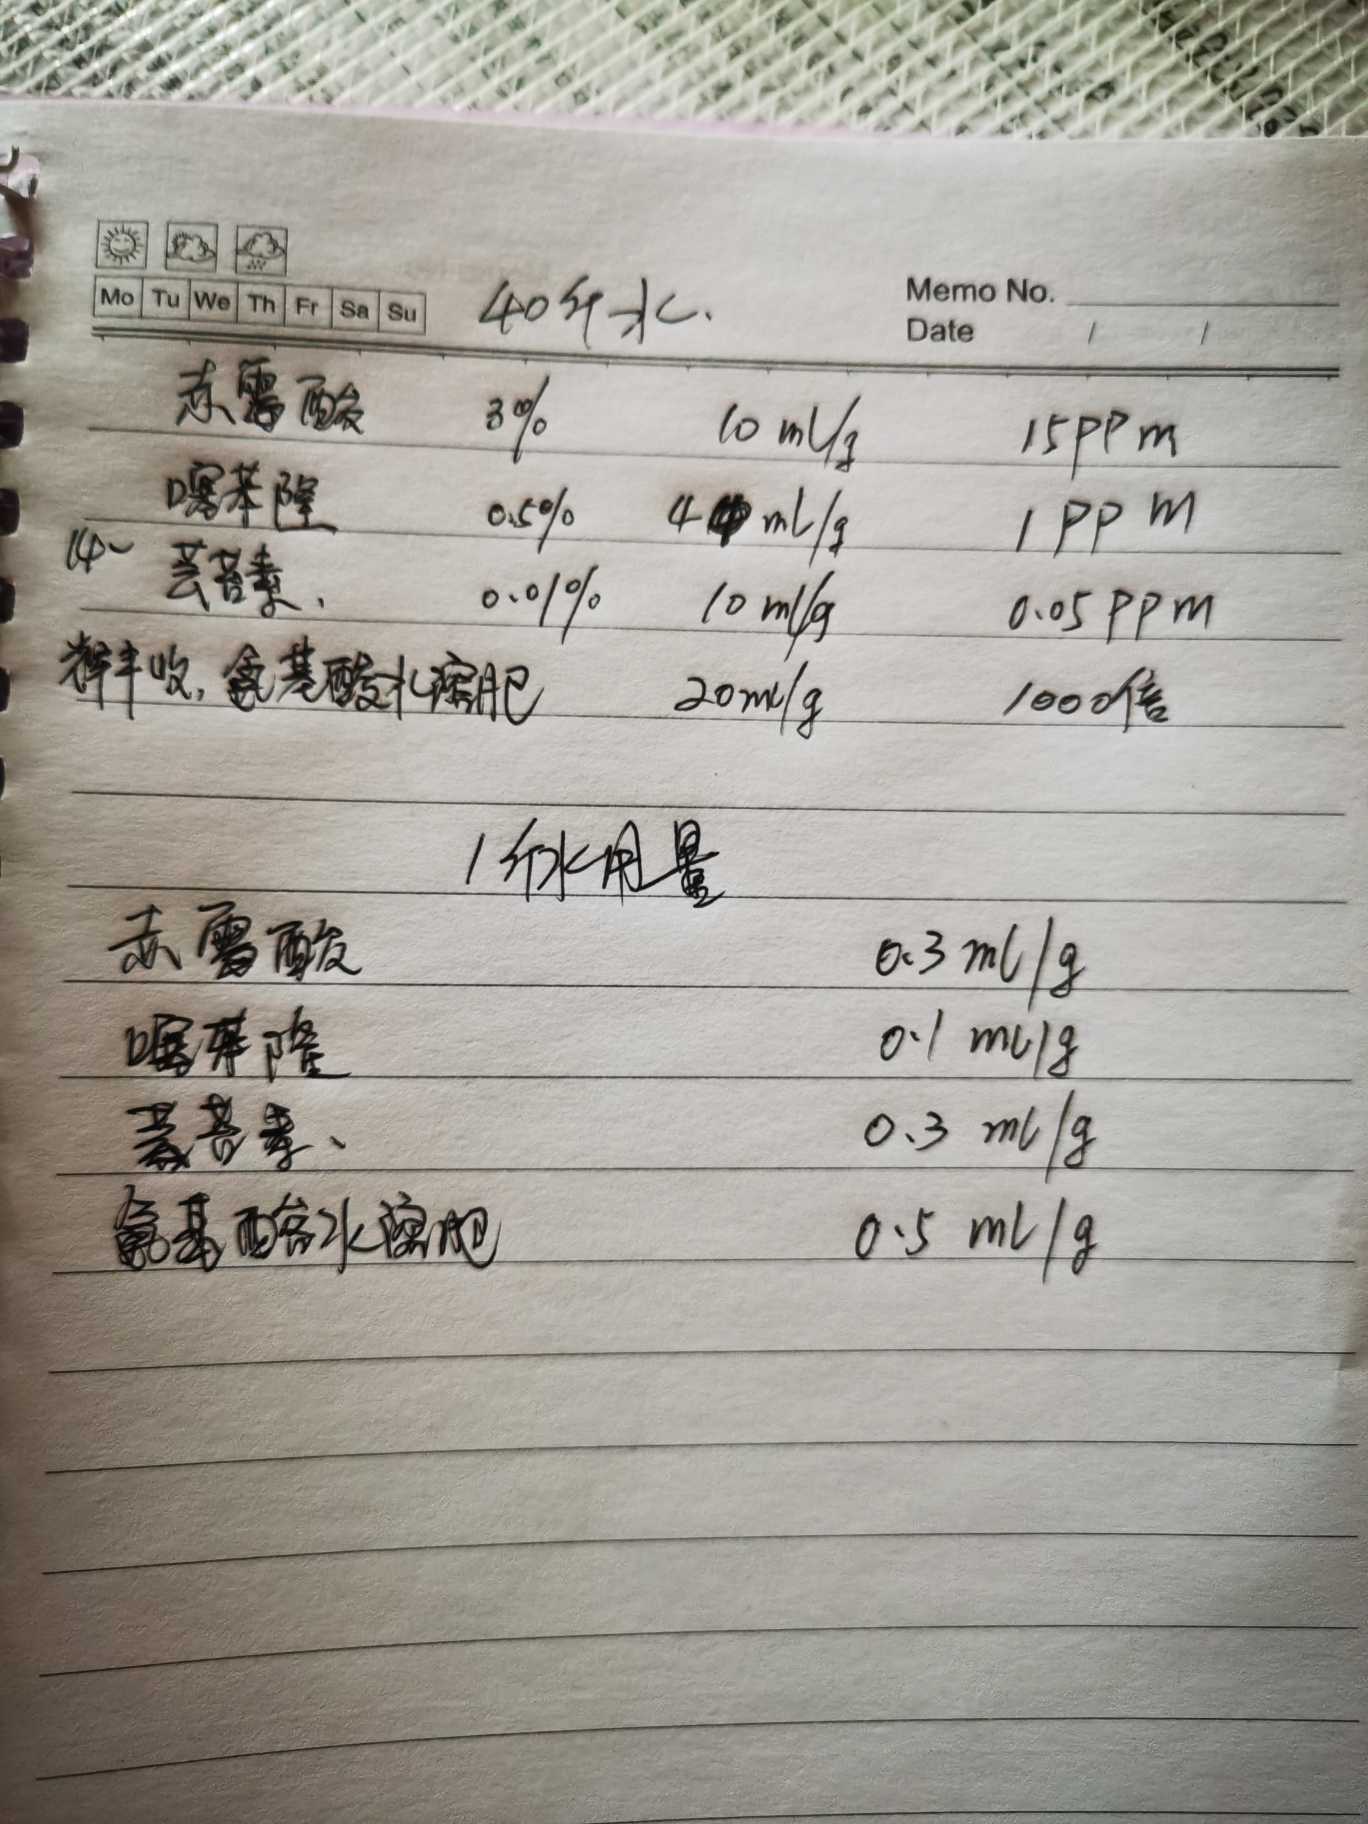 Mo Tu We Th Fr Sa Su 40斤水. Memo No.
Date / /
赤霉酸 3% 10 ml/g 15PPm
噻苯隆 0.5% 4 ml/g 1PPm
14- 芸苔素. 0.01% 10 ml/g 0.05PPm
丰收, 氨基酸水溶肥 20ml/g 1000倍
1斤水用量
赤霉酸 0.3 ml/g
噻苯隆 0.1 ml/g
芸苔素、 0.3 ml/g
氨基酸水溶肥 0.5 ml/g